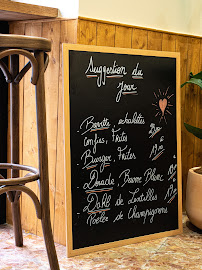 Suggestion du
Jour
Bavette échalotes
confites, frites
Burger, frites
Dorade, Beurre Blanc
Dahl de Lentilles
Poêlée de Champignons